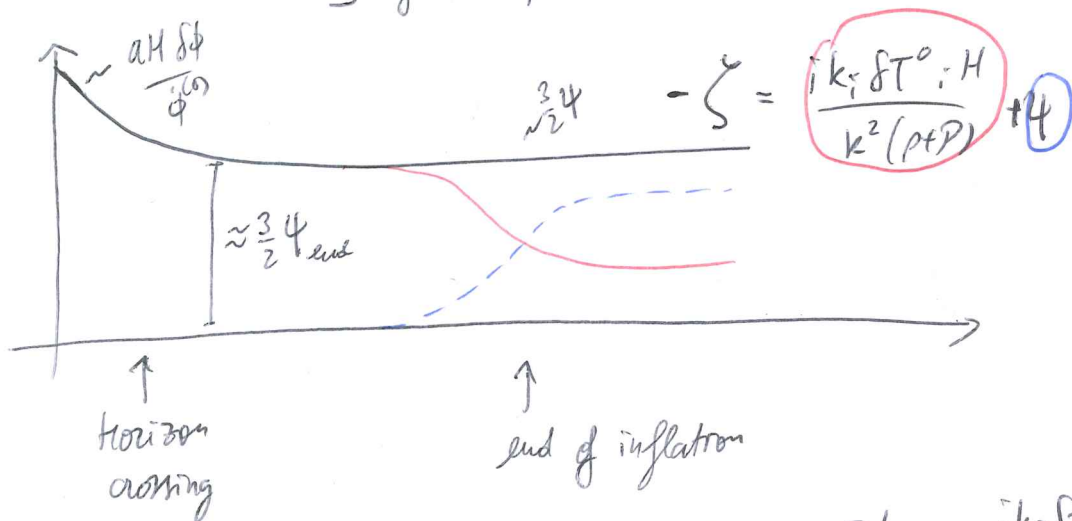 ~ aH δφ / φ̇⁽⁰⁾
~ 3/2 ψ
- ζ = i kᵢ δT⁰ᵢ H / k² (ρ+P) + ψ
≈ 3/2 ψ end
Horizon
crossing
end of inflation